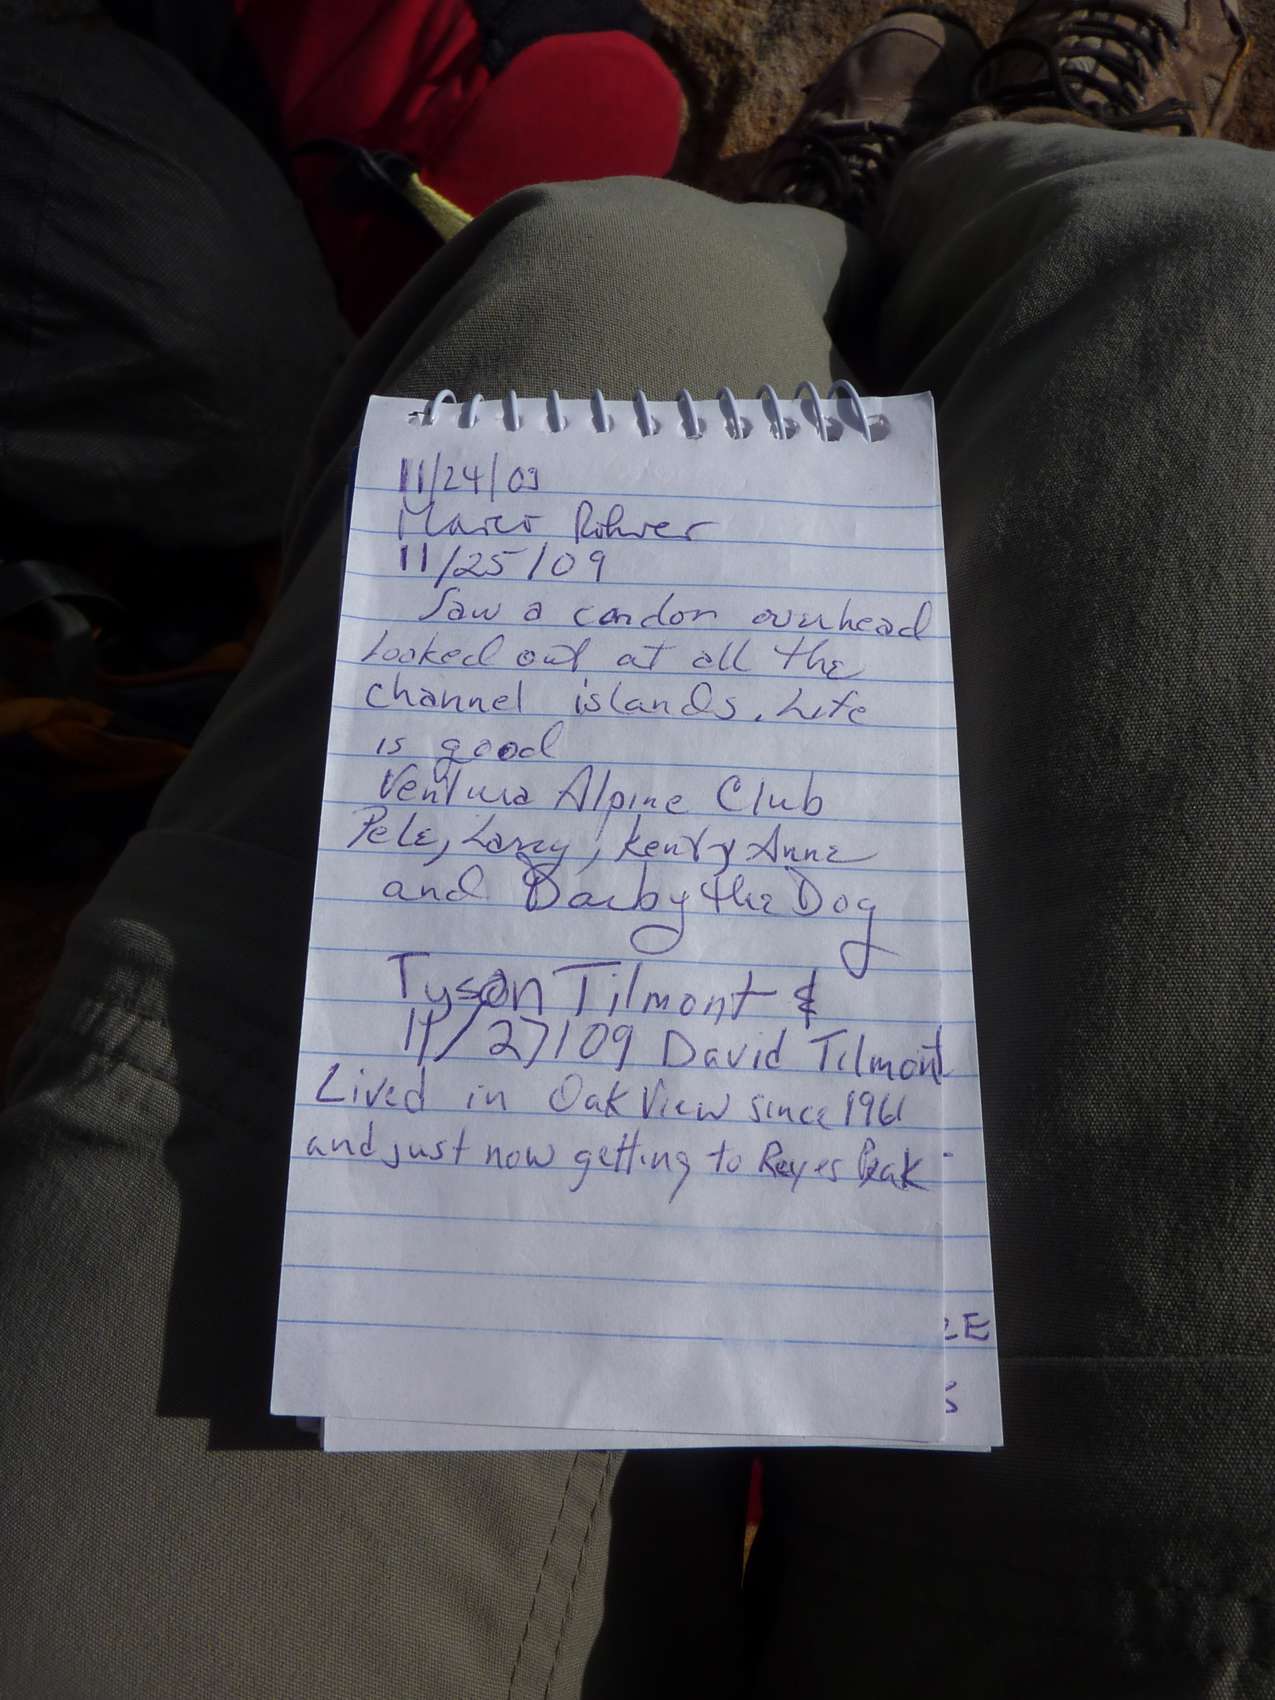 11/24/09
Marco Rohrer
11/25/09
Saw a condor overhead
Looked out at all the
channel islands. Life
is good
Ventura Alpine Club
Pete, Larry, Kenty Anne
and Darby the Dog
Tyson Tilmont &
11/27/09 David Tilmont
Lived in Oak View since 1961
and just now getting to Reyes Peak.
RE
S